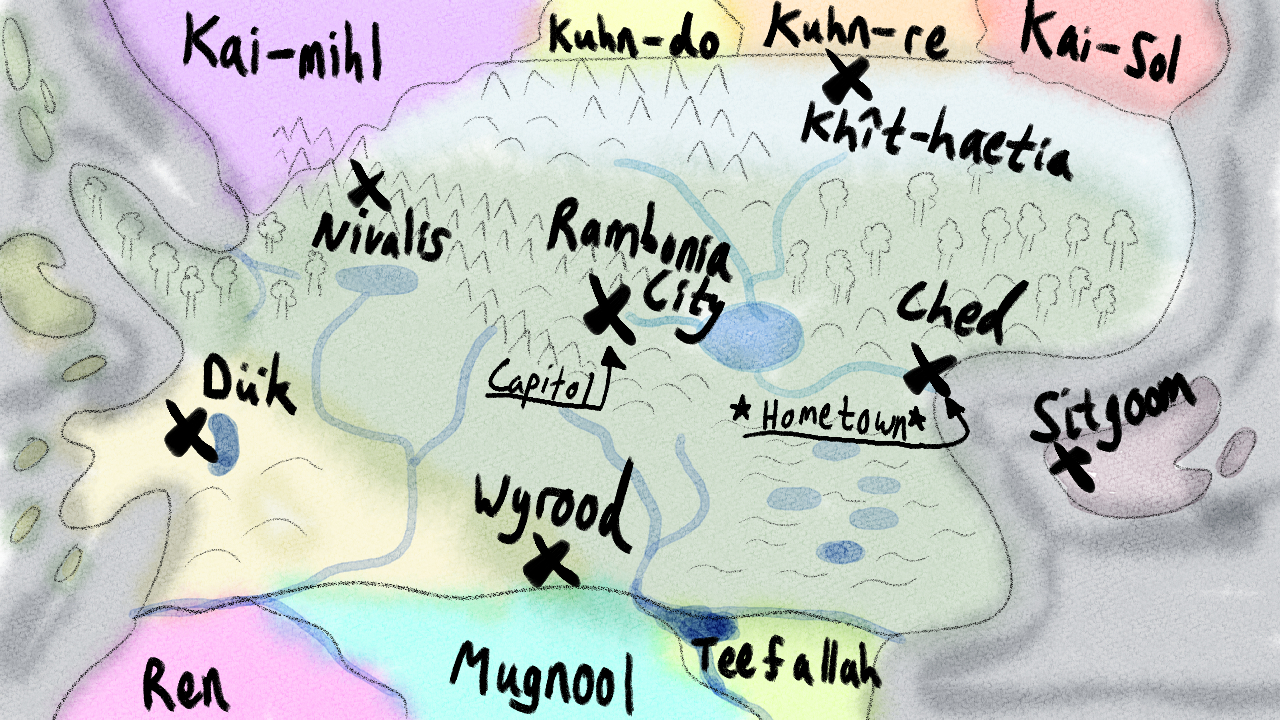 Kai-mihl
Kuhn-do
Kuhn-re
Kai-Sol
Khît-haetia
Nivalis
Rambonia
City
Ched
Capitol
Dük
*Hometown*
Sitgoom
Wyrood
Ren
Mugnool
Teefallah